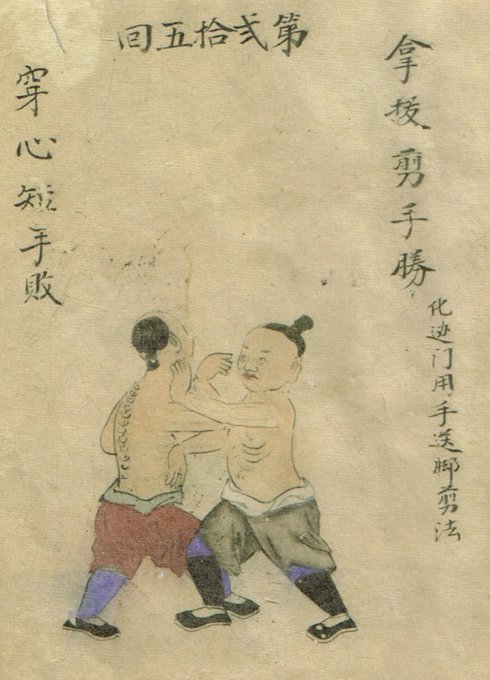 第弍拾五回
拿拔剪手勝
化边门用手送脚剪法
穿心短手敗